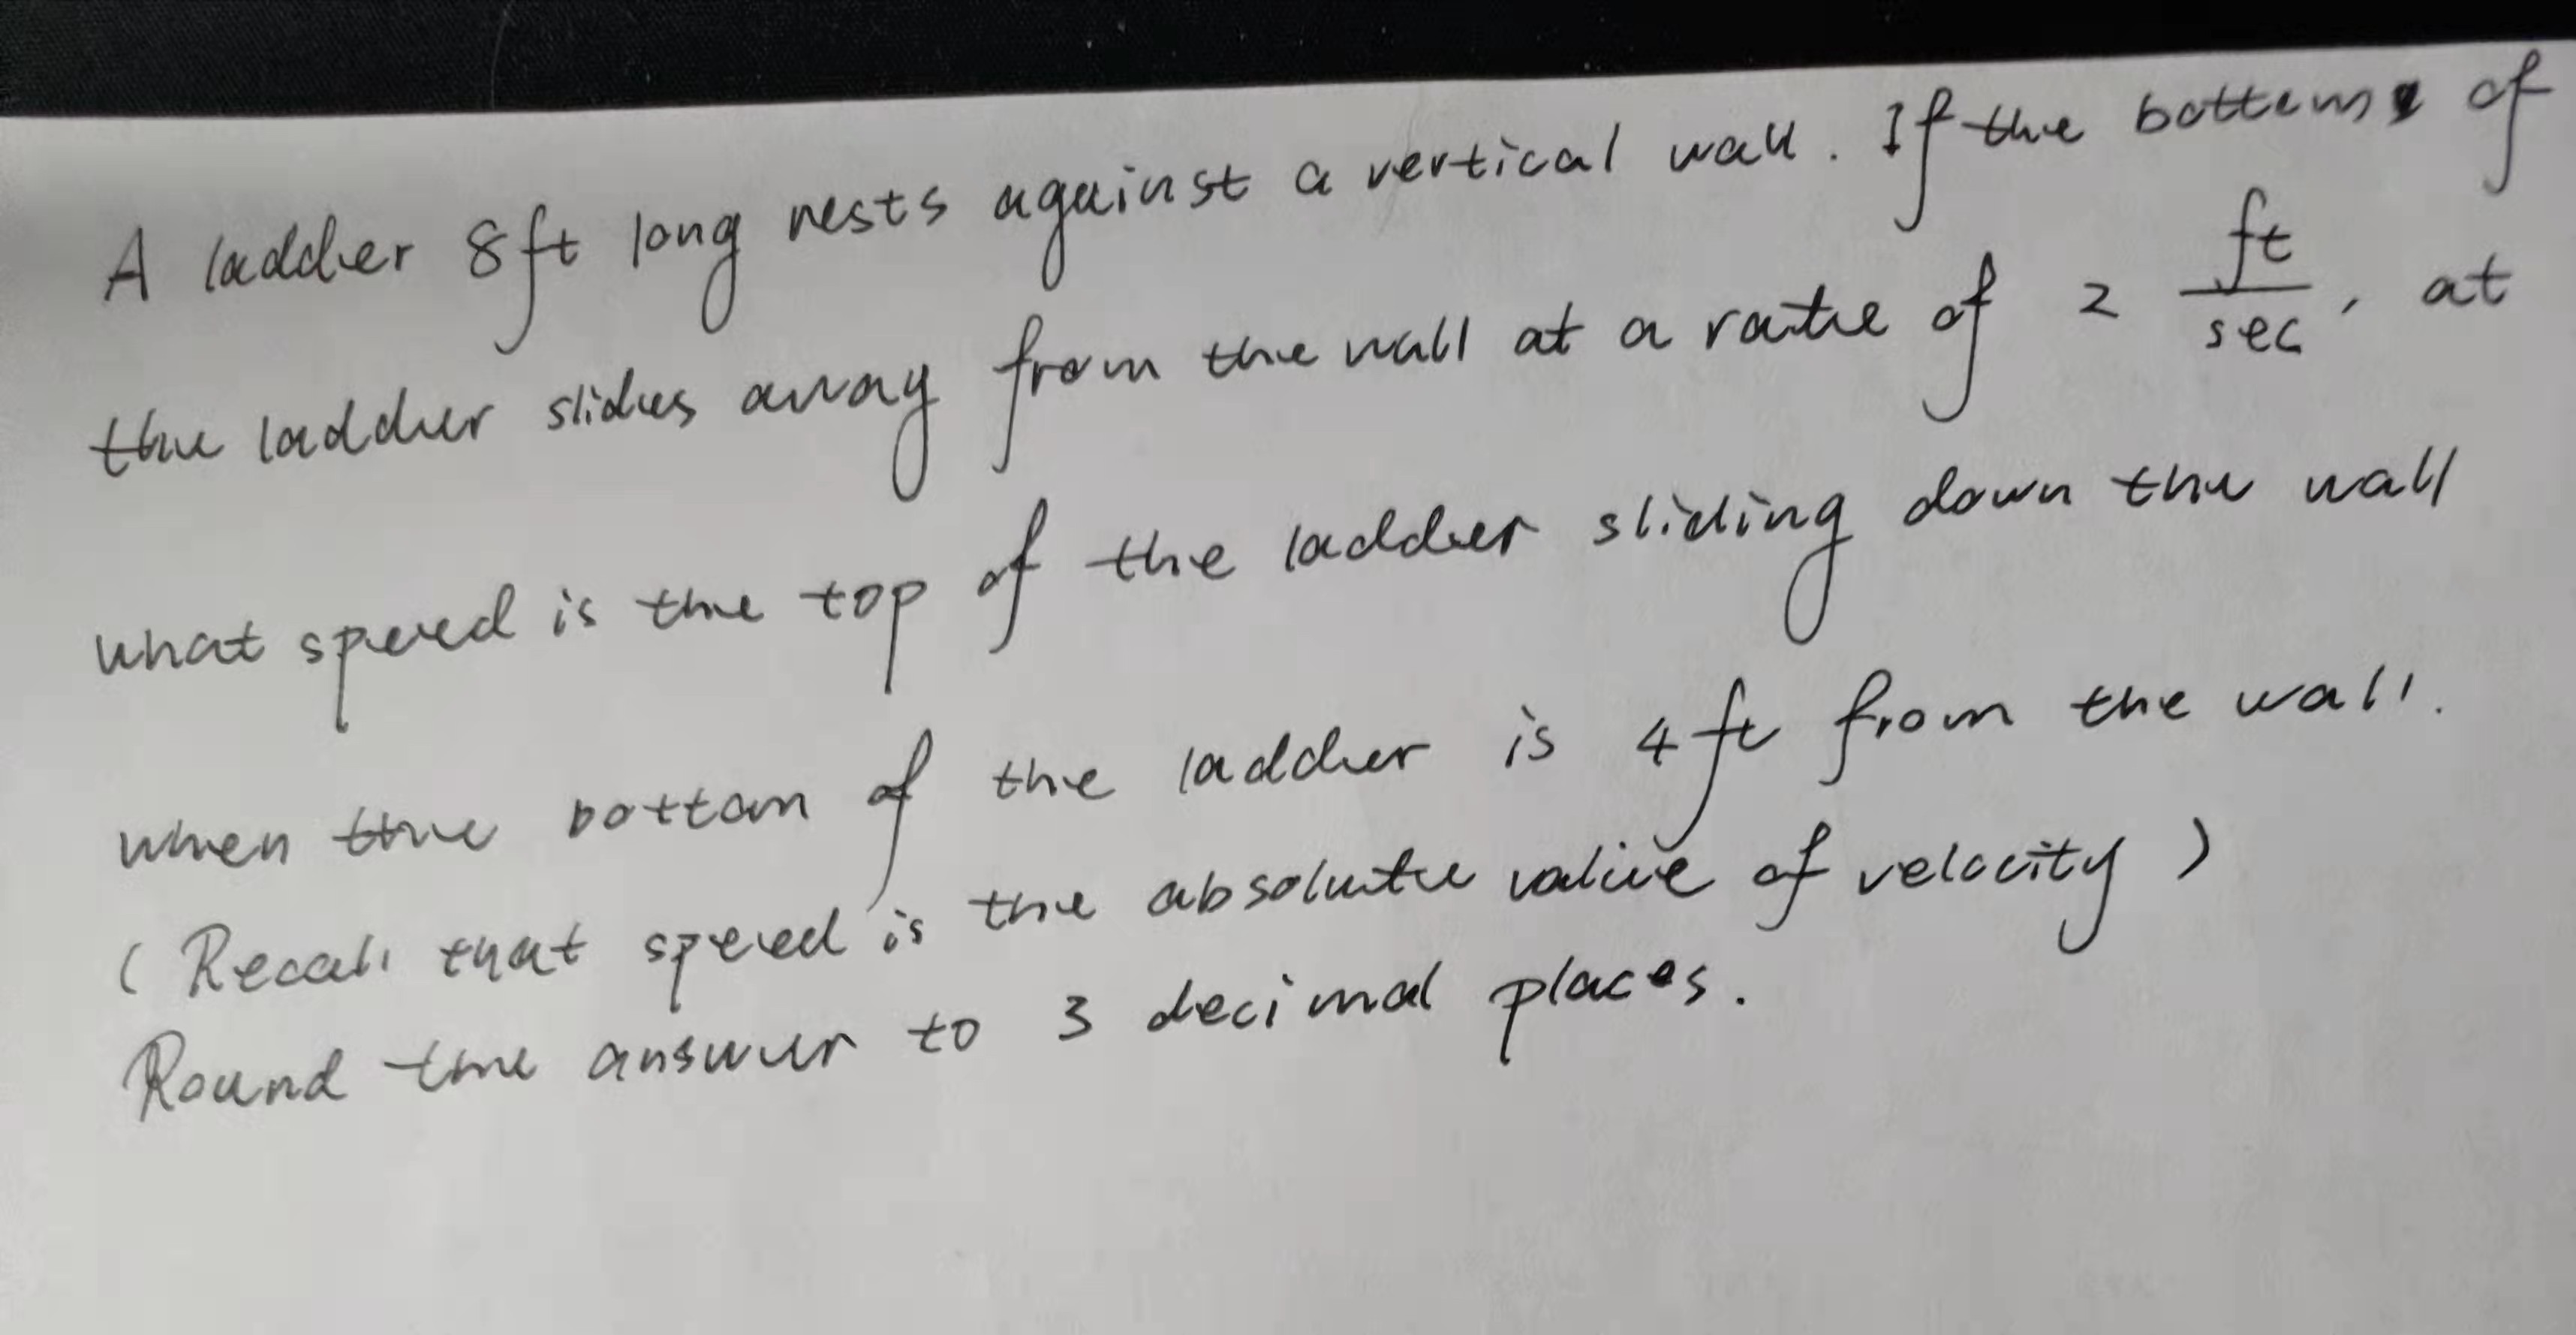 A ladder 8ft long rests against a vertical wall. If the bottom of
the ladder slides away from the wall at a rate of 2 ft/sec, at
what speed is the top of the ladder sliding down the wall
when the bottom of the ladder is 4 ft from the wall.
(Recall that speed is the absolute value of velocity)
Round the answer to 3 decimal places.